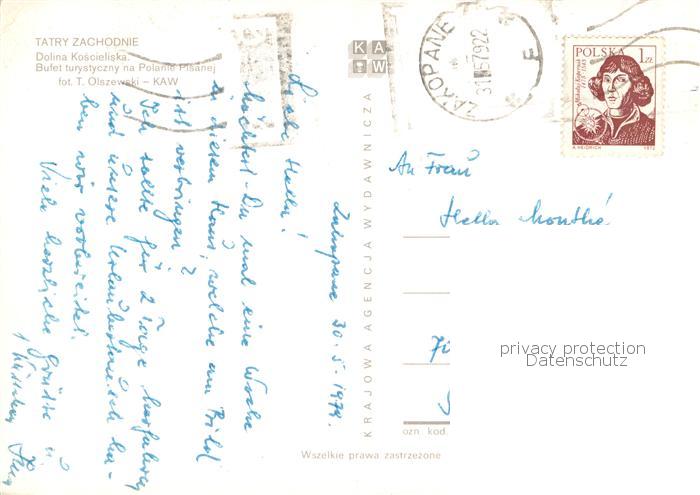 TATRY ZACHODNIE
Dolina Kościeliska.
Bufet turystyczny na Polanie Pisanej
fot. T. Olszewski – KAW
KAW
KRAJOWA AGENCJA WYDAWNICZA
Wszelkie prawa zastrzeżone
ozn. kod.
ZAKOPANE
POLSKA 1 ZŁ
Mikołaj Kopernik
1473-1543
A. HEIDRICH 1972
Zakopane 30-5-1979.
Liebe Hella!
Möchtest Du mal eine Woche
in diesem Haus, welche am Bild
ist verbringen?
Ich sollte für 2 Tage
und unsere ha-
ben wir vorbereitet.
Viele herzliche Grüße u.
An Frau
Hella
privacy protection
Datenschutz